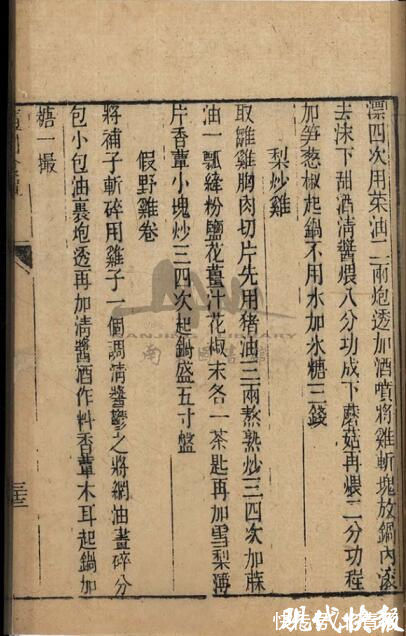 漂四次用菜油二兩炮透加酒噴將雞斬塊放鍋內滚
去沫下甜酒清醬煨八分功成下蘑菇再煨二分功程
加笋葱椒起鍋不用水加氷糖三錢
梨炒雞
取雛雞胸肉切片先用猪油三兩熬熟炒三四次加蔴
油一瓢縴粉鹽花薑汁花椒末各一茶匙再加雪梨薄
片香蕈小塊炒三四次起鍋盛五寸盤
假野雞卷
將補子斬碎用雞子一個調清醬鬱之將網油畫碎分
包小包油裹炮透再加清醬酒作料香蕈木耳起鍋加
糖一撮
三三
南 圖書館
現代快報